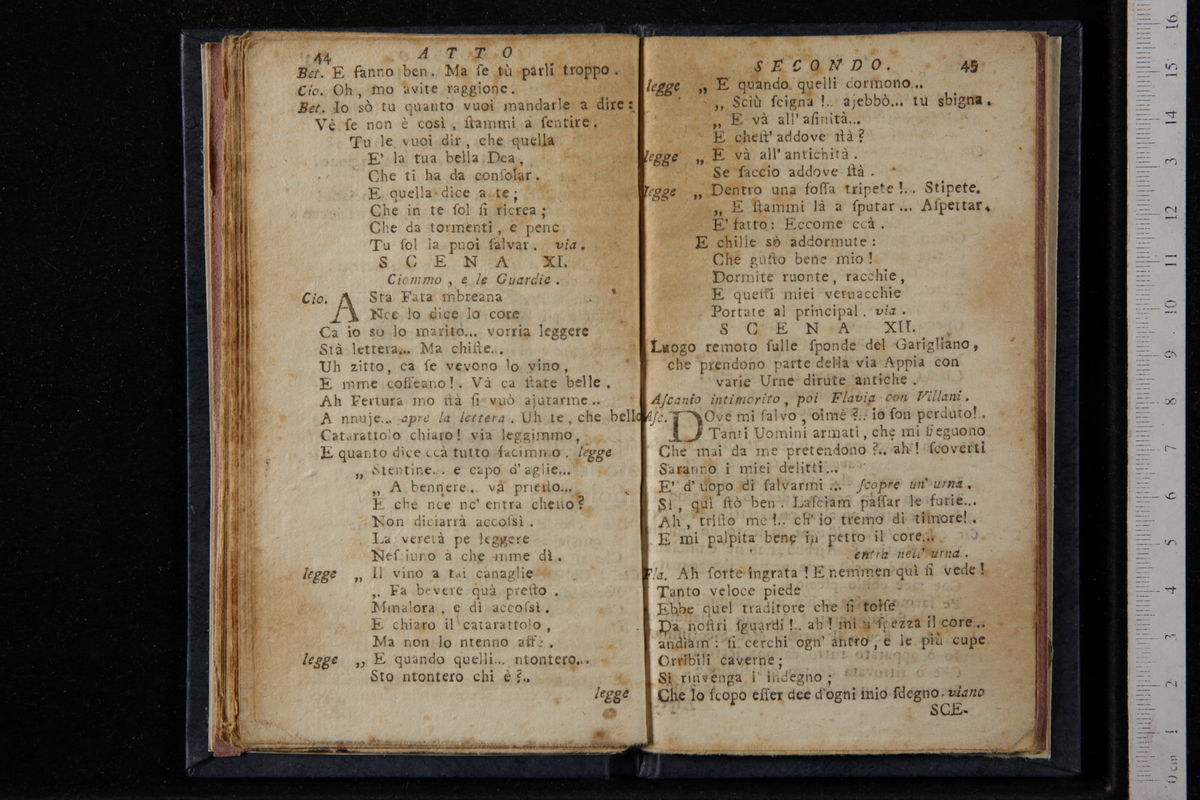 44 ATTO
Bet. E fanno ben. Ma ſe tù parli troppo.
Cio. Oh, mo avite raggione.
Bet. Io sò tu quanto vuoi mandarle a dire:
Vè ſe non è così, ſtammi a ſentire.
Tu le vuoi dir, che quella
E' la tua bella Dea,
Che ti ha da conſolar.
E quella dice a te;
Che in te ſol ſi ricrea;
Che da tormenti, e pene
Tu ſol la puoi ſalvar. via.
SCENA XI.
Ciommo, e le Guardie.
Cio. ASta Fata mbreana
Nce lo dice lo core
Ca io so lo marito... vorria leggere
Stà lettera... Ma chiſte...
Uh zitto, ca ſe vevono lo vino,
E mme coffeano!. Và ca ſtate belle.
Ah Fertura mo ſtà ſi vuò ajutarme..
A nnuje... apre la lettera. Uh te, che bello
Catarattolo chiaro! via leggimmo,
E quanto dice ccà tutto facimmo. legge
„ Stentine... e capo d'aglie...
„ A bennere... và prieſto...
E che nce nc' entra cheſto?
Non diciarrà accoſsì.
La veretà pe leggere
Neſ iuno a che mme dì.
legge „ Il vino a tai canaglie
„ Fa bevere quà preſto.
Mmalora, e dì accoſsì.
E chiaro il catarattolo,
Ma non lo ntenno affè.
legge „ E quando quelli... ntontero...
Sto ntontero chi è?..
legge
SECONDO. 45
legge „ E quando quelli dormono...
„ Sciù ſcigna!.. ajebbò... tu sbigna.
„ E và all' aſinità...
E cheſt' addove ſtà?
legge „ E và all' antichità.
Se faccio addove ſtà.
legge „ Dentro una foſſa tripete!... Stipete.
„ E ſtammi là a ſputar... Aſpettar.
E' fatto: Eccome ccà.
E chille sò addormute:
Che guſto bene mio!
Dormite ruonte, racchie,
E queſti miei vernacchie
Portate al principal. via.
SCENA XII.
Luogo remoto ſulle ſponde del Garigliano,
che prendono parte della via Appia con
varie Urne dirute antiche.
Aſcanio intimorito, poi Flavia con Villani.
Aſc. DOve mi ſalvo, oimè?.. io ſon perduto!.
Tanti Uomini armati, che mi ſieguono
Che mai da me pretendono?.. ah! ſcoverti
Saranno i miei delitti...
E' d' uopo di ſalvarmi... ſcopre un' urna.
Sì, quì ſtò ben. Laſciam paſſar le furie...
Ah, triſto me!.. ch' io tremo di timore!.
E mi palpita bene in petto il core...
entra nell' urna.
Fla. Ah ſorte ingrata! E nemmen quì ſi vede!
Tanto veloce piede
Ebbe quel traditore che ſi tolſe
Da noſtri ſguardi!.. ah! mi ſi ſpezza il core..
andiam: ſi cerchi ogn' antro, e le più cupe
Orribili caverne;
Si rinvenga l' indegno;
Che lo ſcopo eſſer dee d'ogni mio ſdegno. viano
SCE-